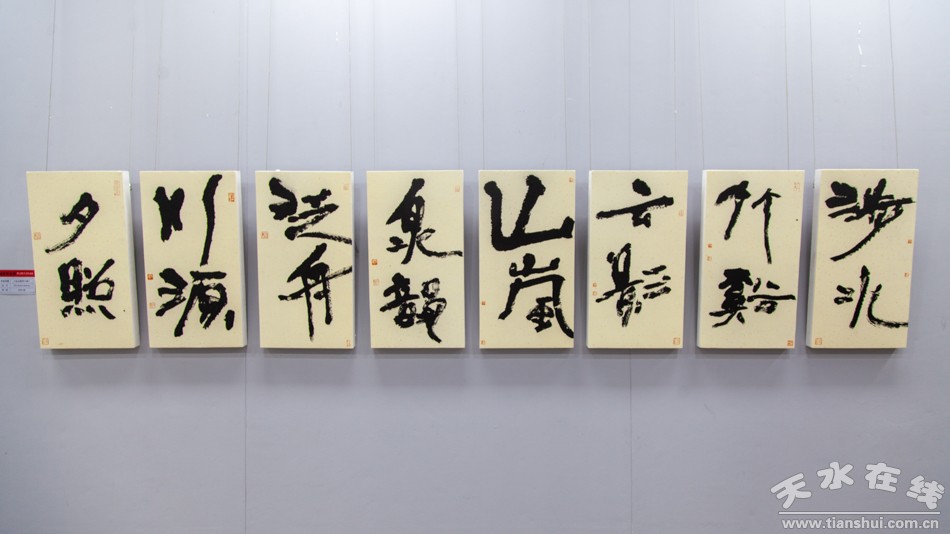 夕照
川源
泛舟
泉韵
山岚
云影
竹谿
涉水
天水在线
www.tianshui.com.cn